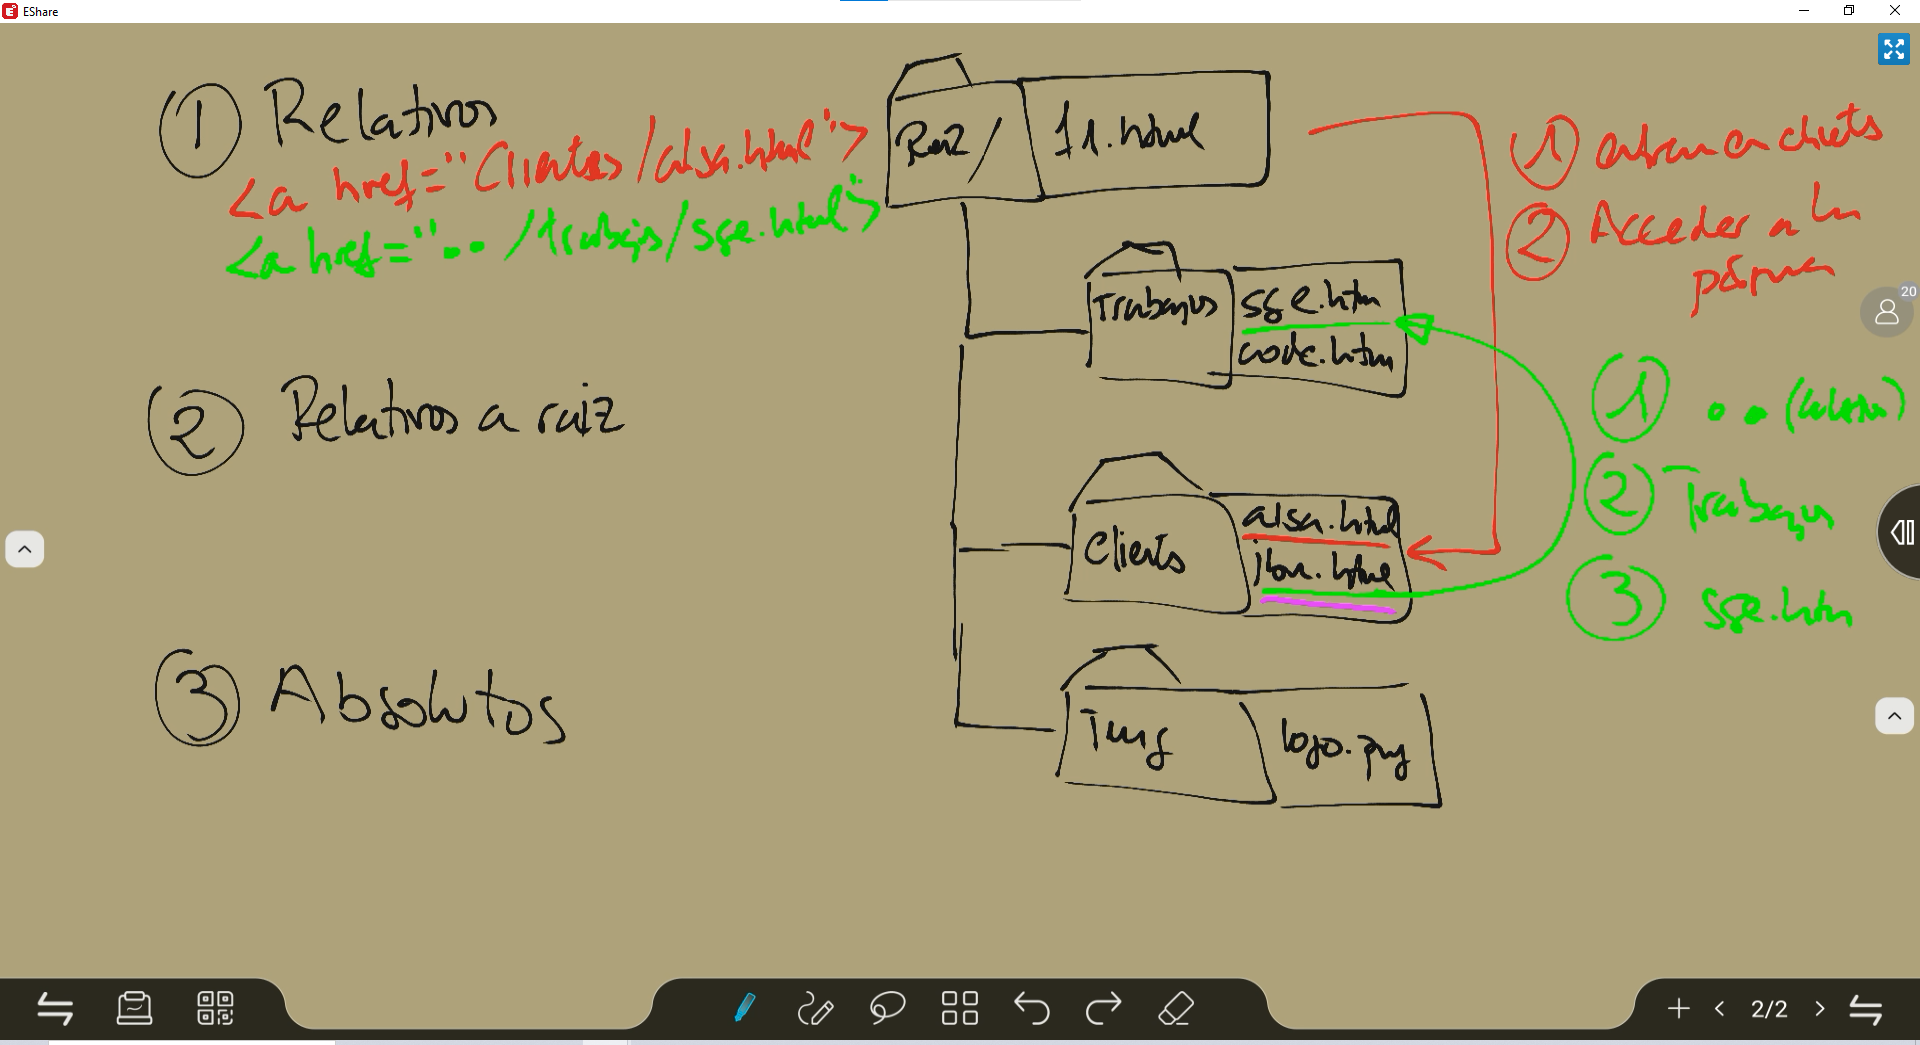 EShare
① Relativos
<a href="Clientes/alsa.html">
<a href="../Trabajos/sge.html">
② Relativos a raiz
③ Absolutos
Raiz/
11.html
Trabajos
sge.htm
code.htm
Clients
alsa.html
Img
logo.png
①
② Acceder a la
página
① ..
② Trabajos
③ sge.htm
20
2/2